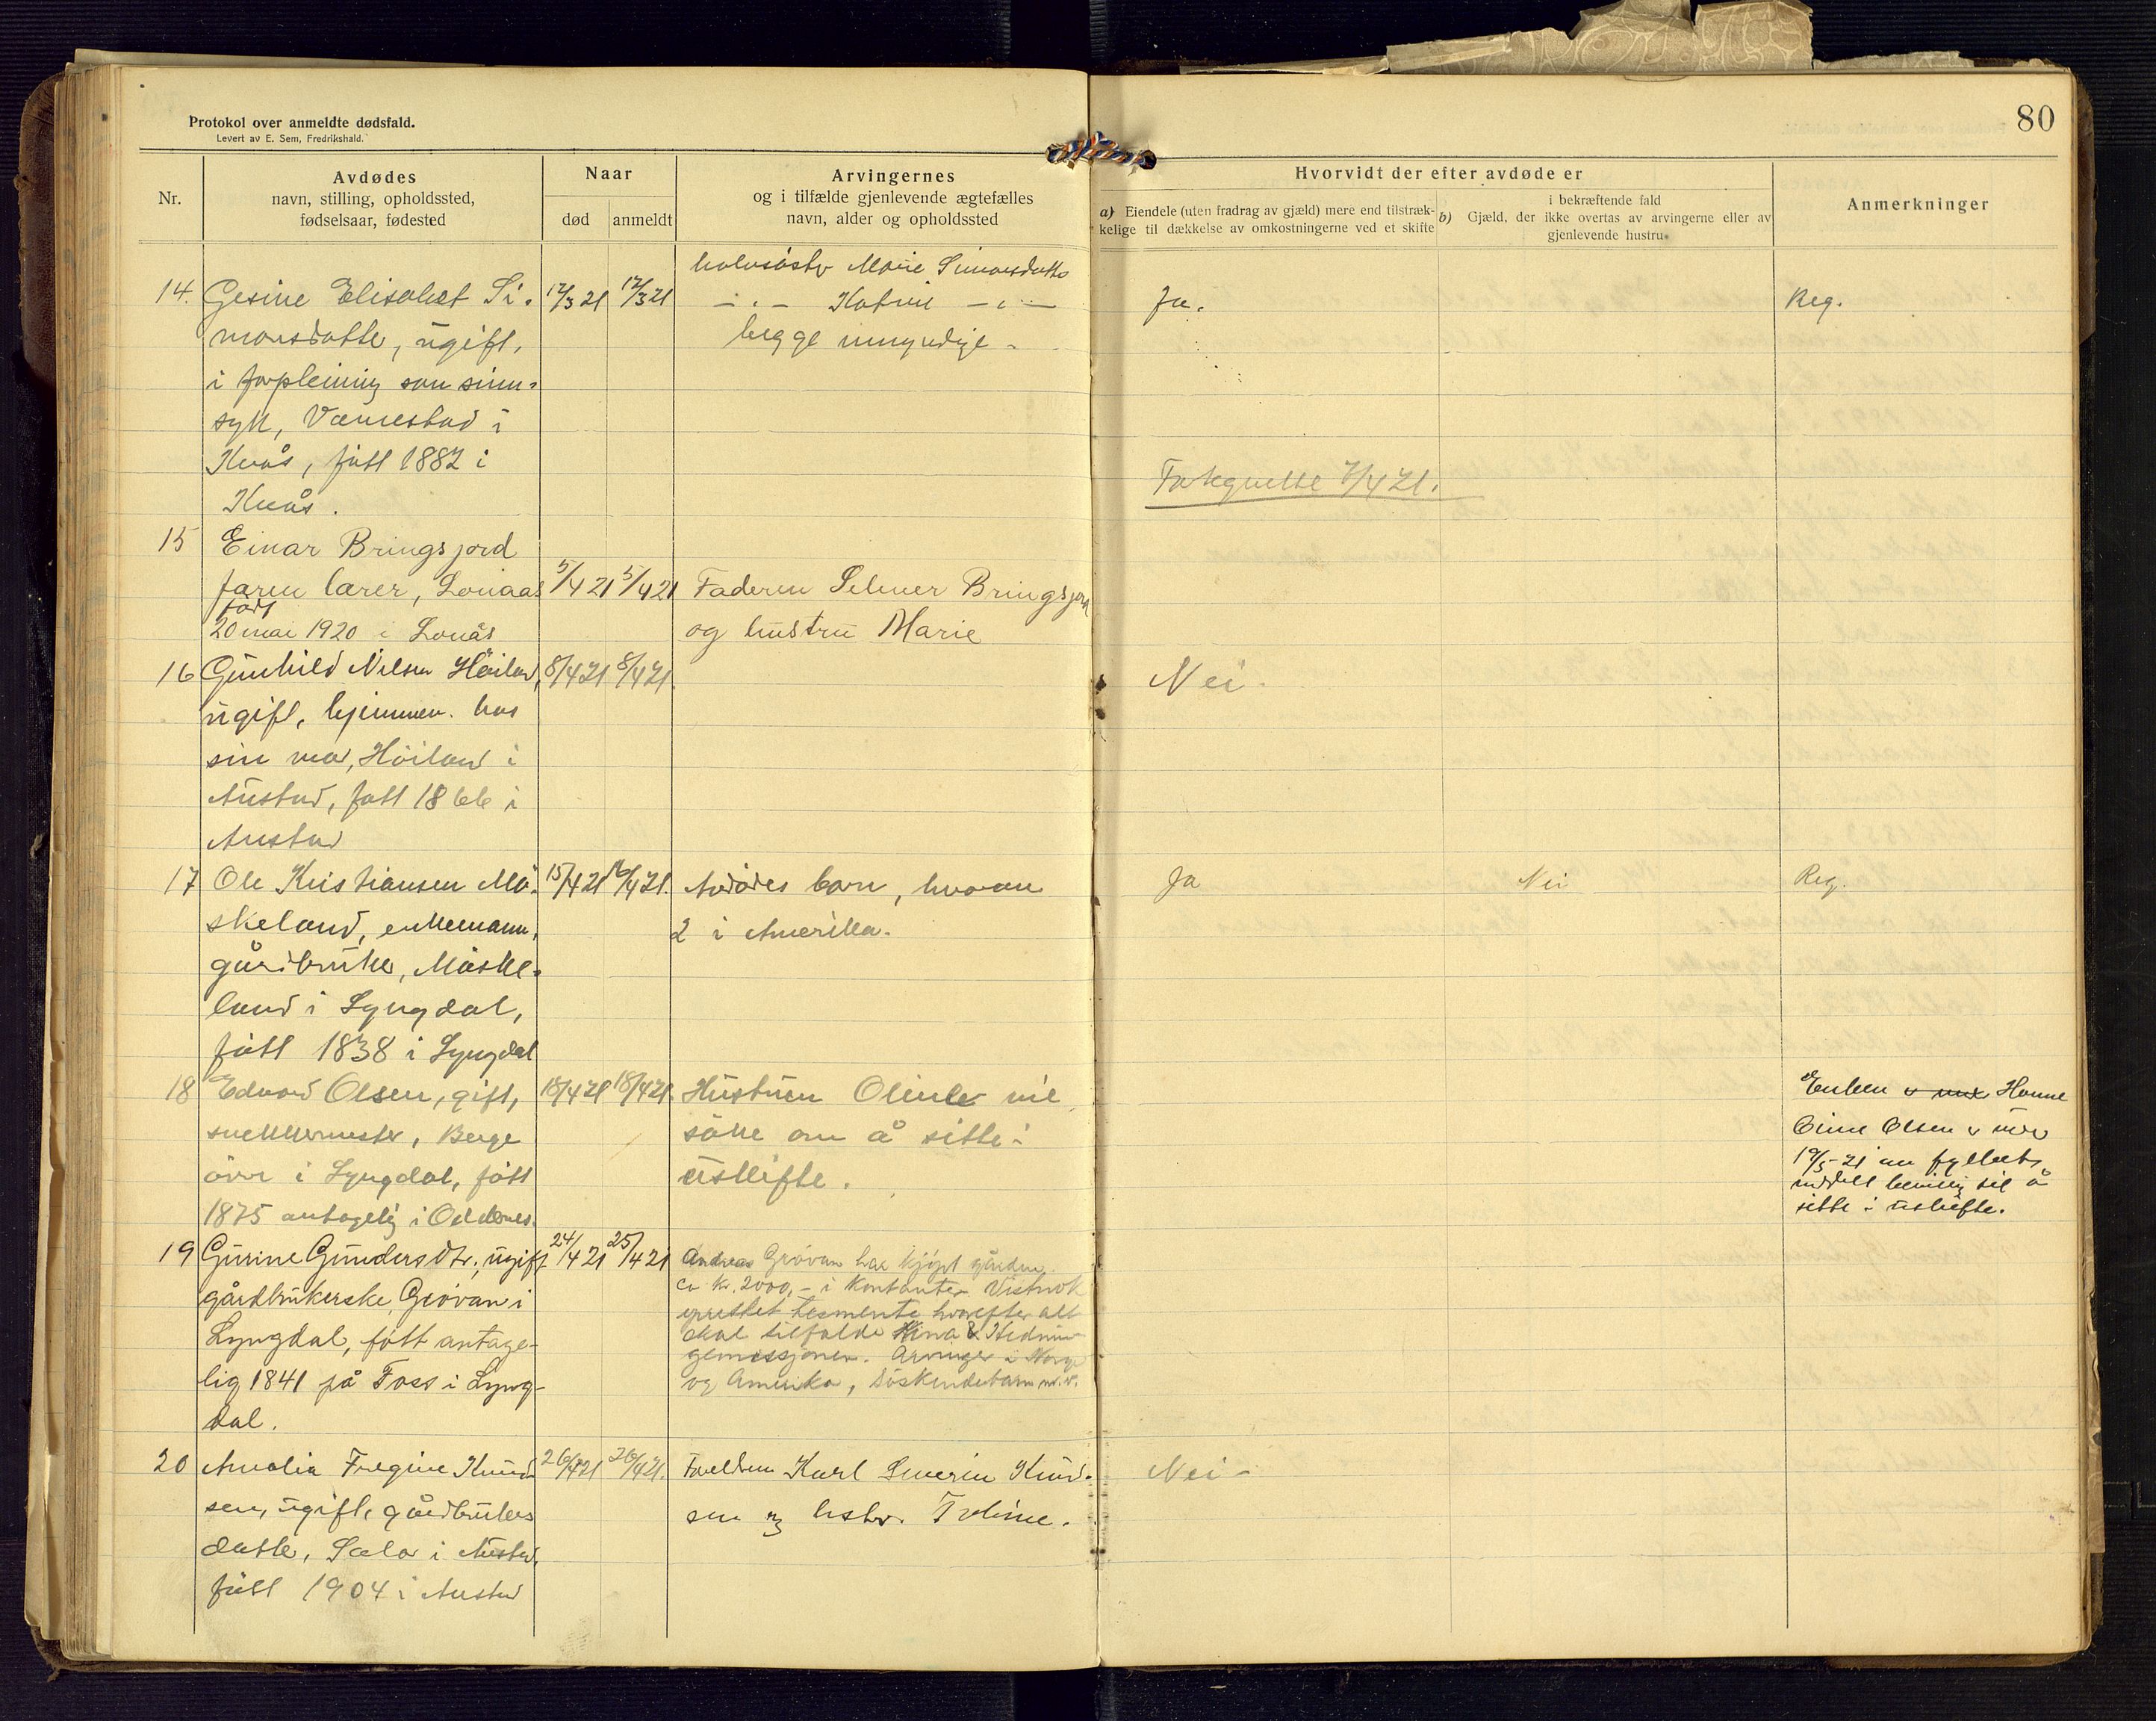 80
Protokol over anmeldte dødsfald.
Levert av E. Sem, Fredrikshald.
Nr.
Avdødes
navn, stilling, opholdssted,
fødselsaar, fødested
Naar
død
anmeldt
Arvingernes
og i tilfælde gjenlevende ægtefælles
navn, alder og opholdssted
Hvorvidt der efter avdøde er
a) Eiendele (uten fradrag av gjæld) mere end tilstræk-
kelige til dækkelse av omkostningerne ved et skifte
i bekræftende fald
b) Gjæld, der ikke overtas av arvingerne eller av
gjenlevende hustru.
Anmerkninger
14. Gesine Elisabet Si-
monsdatter, ugift,
i forpleining som sinn-
syk, Vemestad i
Kvås, født 1882 i
Kvås.
12/3 21 17/3 21
halvsøster Marie Simonsdatter
— " — Katrine — " —
begge umyndige.
Ja.
Reg.
7/4 21.
15 Einar Bringsjord
faren lærer, Lonaas
født
20 mai 1920 i Lonås
5/4 21 5/4 21
Faderen Selmer Bringsjord
og hustru Marie
16 Gunhild Nilsen Høiland,
ugift, hjemmev. hos
sin mor, Høiland i
Austad, født 1866 i
Austad
8/4 21 8/4 21.
Nei.
17 Ole Kristiansen Mø-
skeland, enkemann,
gårdbruker, Møske-
land i Lyngdal,
født 1838 i Lyngdal
15/4 21 16/4 21.
Avdødes barn, hvorav
2 i Amerika.
Ja
Nei
Reg.
18 Edvard Olsen, gift,
snekkermester, Berge
øvre i Lyngdal, født
1875 antagelig i Oddernes.
18/4 21 18/4 21.
Hustruen Oline vil
søke om å sitte i
uskifte.
Enken Hanne
Oline Olsen er under
19/5-21 av fylket
meddelt bevilling til å
sitte i uskifte.
19 Gurine Gundersdtr., ugift
gårdbrukerske Grövan i
Lyngdal, født antage-
lig 1841 på Foss i Lyng-
dal.
24/4 21 25/4 21
Andreas Grövan har kjöpt gården
ca kr. 2000,- i kontanter. Vistnok
oprettet tesmente hvorefter alt
skal tilfalde Kina & Hednin-
gemissjonen. Arvinger i Norge
og Amerika, Söskendebarn m.v.
20 Amalia Fregine Knud-
sen, ugift, gårdbrukers
datter, Sæla i Austad,
født 1904 i Austad
26/4 21 26/4 21.
Foreldrene Karl Severin Knud-
sen og hustr. Toline.
Nei -